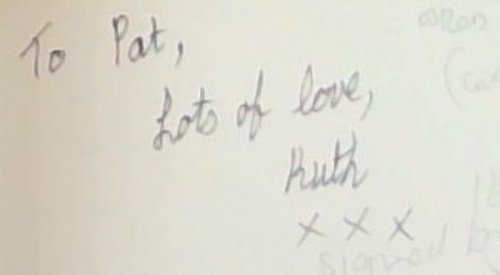 To Pat,
Lots of love,
Ruth
x x x
signed by